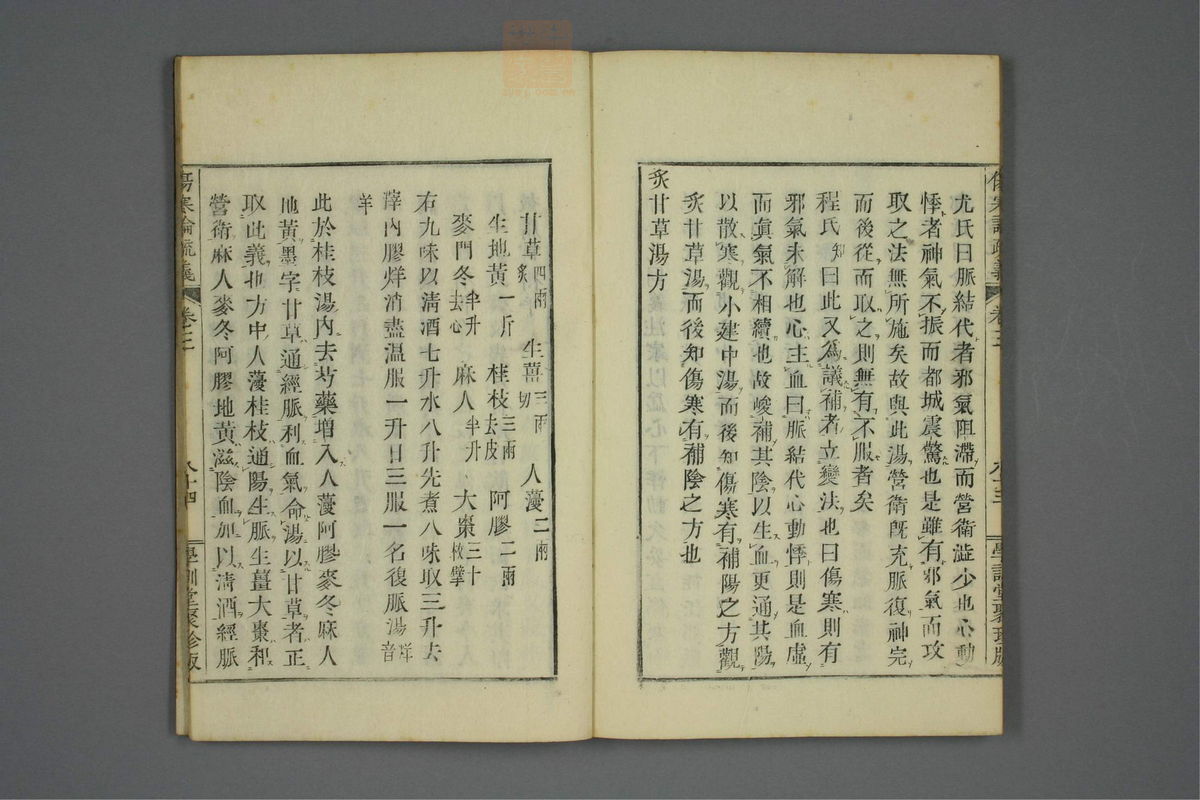 尤氏曰脈結代者邪氣阻滯而營衛澁少也心動
悸者神氣不振而都城震驚也是雖有邪氣而攻
取之法無所施矣故與此湯營衛旣充脈復神完
而後從而取之則無有不服者矣
程氏知曰此又爲議補者立變法也曰傷寒則有
邪氣未解也心主血曰脈結代心動悸則是血虛
而眞氣不相續也故峻補其陰以生血更通其陽
以散寒觀小建中湯而後知傷寒有補陽之方觀
炙甘草湯而後知傷寒有補陰之方也
炙甘草湯方
傷寒論疏義 卷三 八十三 學訓堂聚珍版
甘草四兩炙 生薑三兩切 人蓡二兩
生地黃一斤 桂枝三兩去皮 阿膠二兩
麥門冬半升去心 麻人半升 大棗三十枚擘
右九味以淸酒七升水八升先煮八味取三升去
滓內膠烊消盡溫服一升日三服一名復脈湯烊音
羊
此於桂枝湯內去芍藥增入人蓡阿膠麥冬麻人
地黃墨字甘草通經脈利血氣命湯以甘草者正
取此義也方中人蓡桂枝通陽生脈生薑大棗和
營衛麻人麥冬阿膠地黃滋陰血加以淸酒經脈
傷寒論疏義 卷三 八十四 學訓堂聚珍版